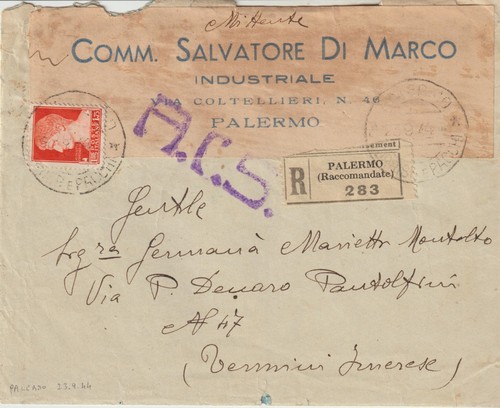 Mittente
COMM. SALVATORE DI MARCO
INDUSTRIALE
VIA COLTELLIERI, N. 46
PALERMO
A.C.S.
R
PALERMO
(Raccomandate)
283
Gentle
Sig.ra Germanà Marietta Montalto
Via P. Denaro Pandolfini
N 47
(Termini Imerese)
PALERMO 23.4.44